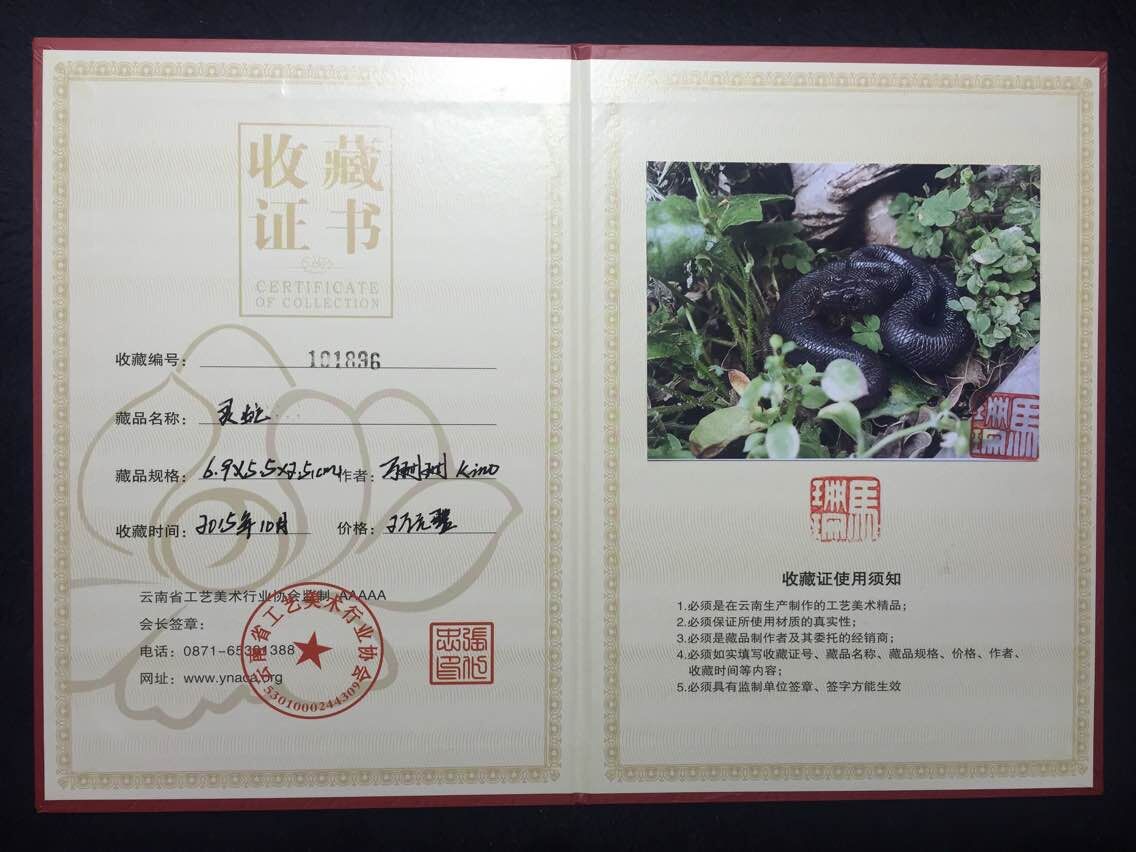 收藏
证书
CERTIFICATE
OF COLLECTION
收藏编号: 101896
藏品名称: 灵蛇
藏品规格: 6.9x5.5x7.5cm 作者: Kino
收藏时间: 2015年10月 价格:
云南省工艺美术行业协会监制 AAAAA
会长签章:
电话: 0871-65391388
网址: www.ynaca.org
云南省工艺美术行业协会
5301000244309
马
珊
收藏证使用须知
1.必须是在云南生产制作的工艺美术精品;
2.必须保证所使用材质的真实性;
3.必须是藏品制作者及其委托的经销商;
4.必须如实填写收藏证号、藏品名称、藏品规格、价格、作者、
收藏时间等内容;
5.必须具有监制单位签章、签字方能生效